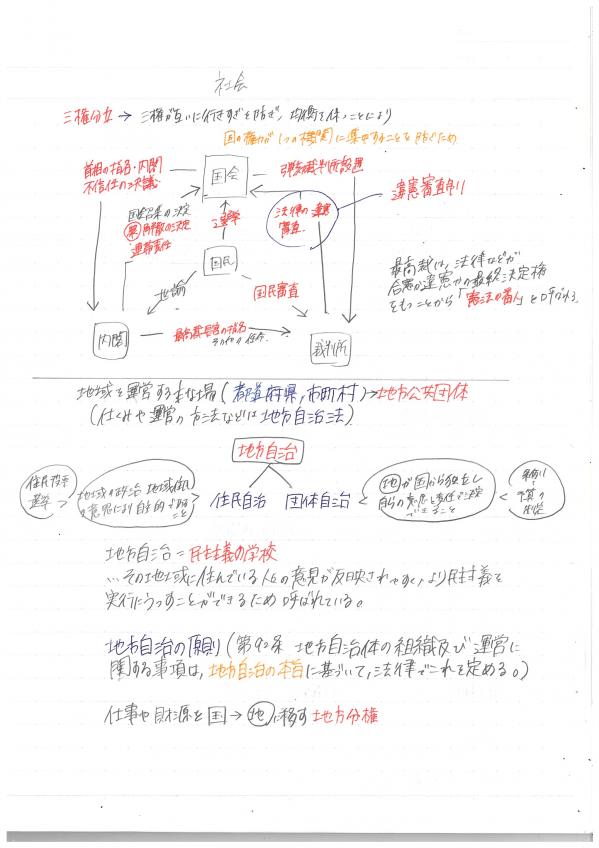 社会
三権分立 → 三権が互いに行きすぎを防ぎ、均衡を保つことにより
国の権力が1つの機関に集中することを防ぐため
首相の指名・内閣
不信任の決議
国会
弾劾裁判所設置
違憲審査
国会召集の決定
衆 解散の決定
連帯責任
選挙
法律の違憲
審査
国民
世論
国民審査
最高裁は、法律などが
合憲か違憲かの最終決定権
をもつことから「憲法の番人」と呼ばれる
内閣
最高裁長官の指名
その他の任命
裁判所
地域を運営する主な場(都道府県, 市町村)→地方公共団体
(仕くみや運営の方法などは 地方自治法)
地方自治
住民投票
選挙
地域の政治 地域住民
の意思により自主的
こと
住民自治
団体自治
地が国から独立し
自らの意思と責任で決定
できること
条例
予算の
地方自治 = 民主主義の学校
…その地域に住んでいる人の意見が反映されやすく、より民主主義を
実行にうつすことができるため 呼ばれている。
地方自治の原則(第92条 地方自治体の組織及び運営に
関する事項は、地方自治の本旨に基づいて、法律でこれを定める。)
仕事や財源を国→地に移す 地方分権